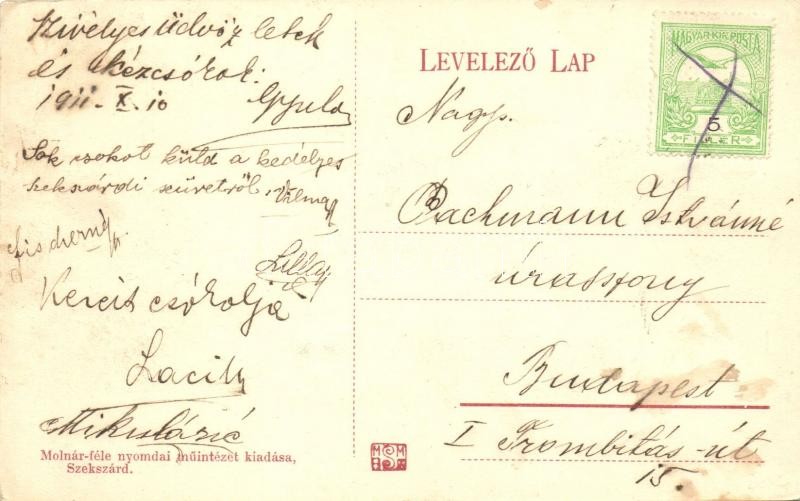 Szivélyes üdvözletek
és kézcsókok:
1911. X. 10 Gyula
Sok csokot küld a kedélyes
szekszárdi szüretről, Vilma
Fischerné
Lilly
Kezeit csókolja
Laci
Mikulázié
Molnár-féle nyomdai műintézet kiadása,
Szekszárd.
LEVELEZŐ LAP
MAGYAR KIR. POSTA
5
FILLÉR
Nagys.
Bachmann Istvánné
úrasszony
Budapest
I Trombitás-út
15.